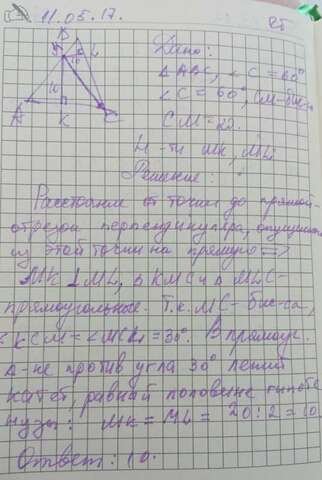 11.05.17.
Дано:
△ABC, ∠C = 60°
∠C = 60°, CM - бис-са
CM = 20.
Н-ти MK, ML
Решение:
Расстояние от точки до прямой -
отрезок перпендикуляра, опущенного
из этой точки на прямую =>
MK ⊥ ML, △ KMC и △ MLC -
прямоугольные. Т.к. MC - бис-са,
∠KCM = ∠MCL = 30°. В прямоуг.
△-не против угла 30° лежит
катет, равный половине гипоте
нузы: MK = ML = 20 : 2 = 10
Ответ: 10.